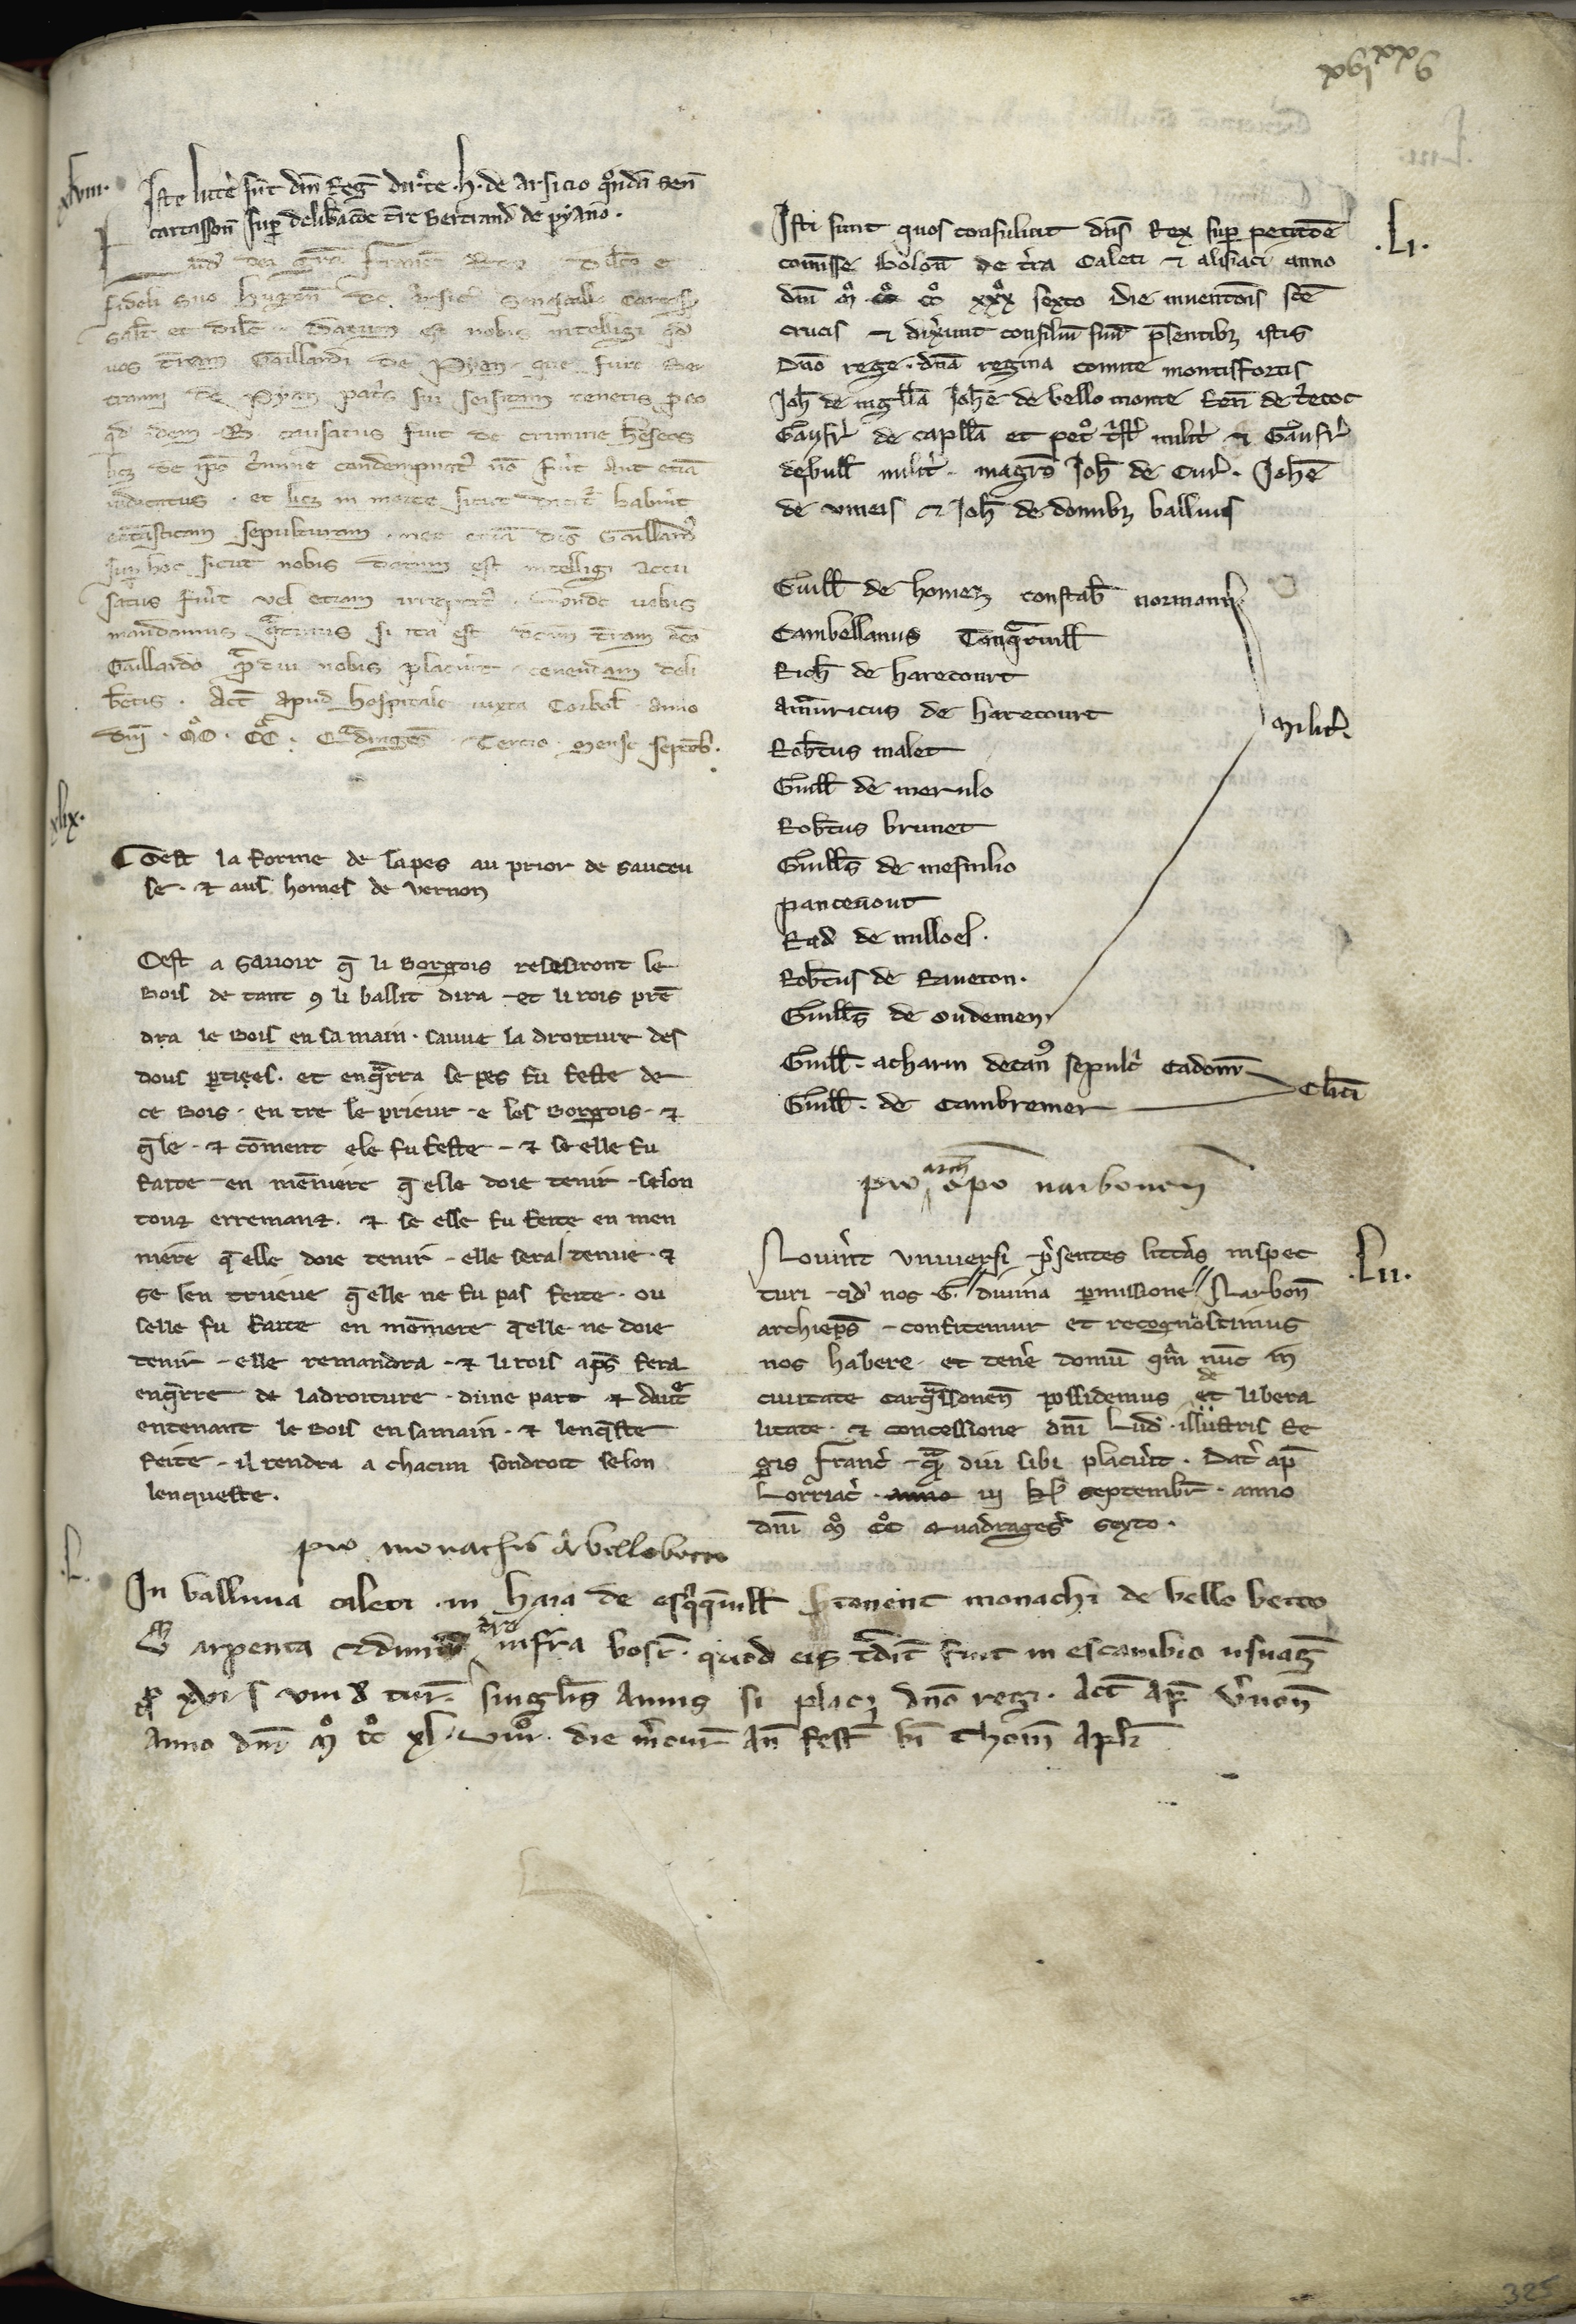 xlviii.
Iste littere sūt dn̄i Reg̅ dirc̄te .h. de arsicio q̊ndā sen̄
carcassoñ sup̱ delibac̄oe tr̄e Bertrand̄ de pyano.
dei gr̄a Franc̄ Rex dilc̄o &
fideli suo hugon̄ de Arsic̄ senescallo Carcass̄
sal̄t et dilc̄. Datum est nobis intelligi qd̄
uos tr̄am Gaillardi de Pyan que fuit Ber
trami de Pyan patis sui sesitam tenetis p̱ eo
qd̄ idem .B. causatus fuit de crimine heͬseos
licꝫ de ip̄o c̓mine condempnat̓ nō fuit aut etiā
et licꝫ in morte sicut dicit̓ habuit
eccl̄iasticam sepulturam. nec etiā dc̄s Gaillard̓
sup̱ hoc sicut nobis datum est intelligi accu
satus fu̓it vel etiam unde uobis
mandamus q̱tinus si ita est dc̄am tr̄am dc̄o
Gaillardo q̱̄diu nobis placu̓it tenendam deli
b̄etis. Act̄ apud hospitale iuxta Corbol̄ anno
dn̄i .m̊. c̊c̊. Qᵃdrages̄ tercio mense septēb̓.
xlix.
Cest la forme de lapes au prior de sauceu
se. & aus homes de vernon
Cest a sauoir q̄ li Borgois reseront le
Bois de tant 9 li baillit dira et li rois prē
dra le Bois en sa main. sauue la droiture des
dous ꝑties. et enq̄rra le pes fu feste de
ce Bois. en tre le prieur e les Borgois. &
q̄le. & cōment ele fu feste. & se elle fu
faite en mēniere q̄ elle doie tenir. selon
touz erremanz. & se elle fu feite en men
niere q̄ elle doie tenir. elle sera tenue. &
se len trueue q̄ elle ne fu pas feite. ou
selle fu faite en mēniere q̄lle ne doie
tenir. elle remandra. & li rois ap̄s fera
enq̄rre de la droiture. dune part & dautͤ
entenant le Bois en sa main. & lenq̄ste
feite. il rendra a chacun son droit selon
lenqueste.
.L.
pro monachis de bellobecco
In balliuia caleti .in haia de esq̓q̄uill̄ tenent monachi de bello becco
arpenta & dimid̄ tr̄e infra bosc̄. quod eis t̄dit̄ fuit in escambio usuag̓
ꝓ xvi s̄ viii đ tur̄. singl̄is annis si placꝫ dn̄o regi. act̄ ap̄ v̓non̄
anno dn̄i m̊ c̊c̊ xl. viii̊. die m̓cur̄ an̄ fest̄ bī Thom̄ apl̄i
.Li.
Isti sunt quos consuluit dn̄s Rex sup̱ petitōe
comisse Bolon̄ de t̓ra Caleti & alisiaci anno
dn̄i m̊ c̊c̊ xxx̊ sexto die inuentōis scē
crucis & dix̓unt consiliū suū p̄sentibꝫ istis
Dn̄o rege. dn̄a regina comite montisfortis
Joh̄ de ingll̄a Joh̄e de bello monte Ren̄ de t̓ecoc
Gaufr̓ de capll̄a et pet̊ t̓st̄ milit̓ & Gaufr̓
de bull̄ milit̓. magr̄o Joh̄ de Cur̓. Joh̄e
de vineis & Joh̄ de domibꝫ balliuis
Guill̄ de homez constab̄ normann̓
Cambellanus Tanq̱ruill̄
Rich̄ de harecourt
Amauricus de harecourt
Rob̄tus malet
Guill̄ de merulo
Rob̄tus brunet
Guill̄s de mesnilio
panceuout
Rad̄ de milloel.
Rob̄tus de Raueton.
Guill̄s de oudemen
milit̓.
Guill̄. acharin decan9 sepulc̓ cadom̄
Guill̄. de Cambremer
Cl̄ici
pro archepo narbonen̄
.Lii.
Nou̓int vniuersi p̓sentes litt̓as inspec
turi qd̄ nos G. diuina ꝑmissione Narbon̄
archiep̄s confitemur et recognoscimus
nos habere et ten̓e domū qm̄ nūc in
ciuitate carq̱ssonen̄ possidemus de et libera
litate. & concessione dn̄i Lud̄. illustris Re
gis Franc̓. q̱̄ diu sibi placu̓it. Dat̓ ap̄
Lorriac̓. anno iij kl̄ septembr̄. anno
dn̄i m̊ c̊c̊ Quadrages̓ sexto.
325